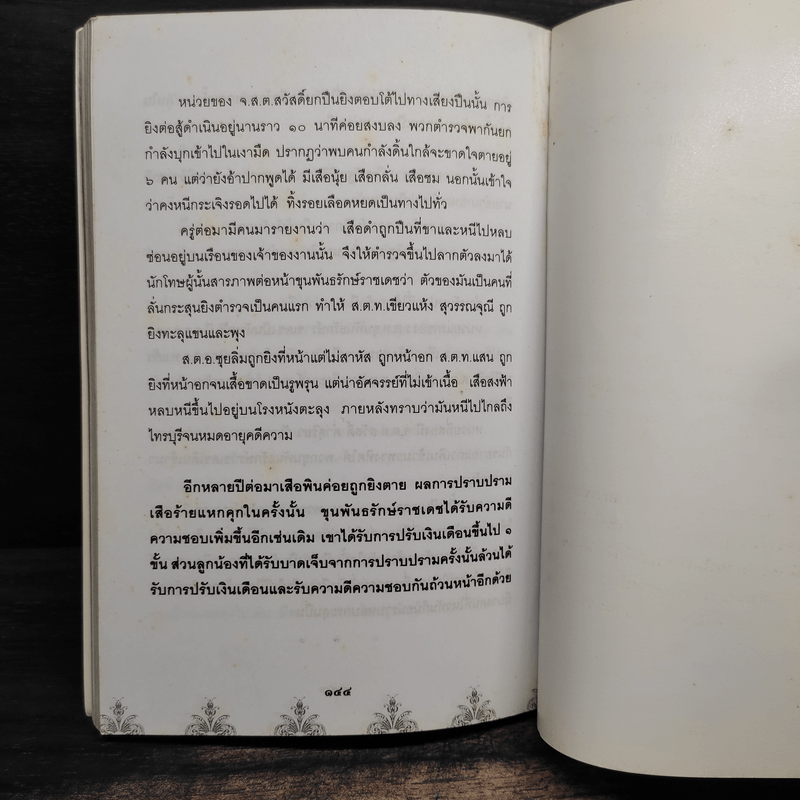 หน่วยของ จ.ส.ต.สวัสดิ์ยกปืนยิงตอบโต้ไปทางเสียงปืนนั้น การ
ยิงต่อสู้ดำเนินอยู่นานราว ๑๐ นาทีค่อยสงบลง พวกตำรวจพากันยก
กำลังบุกเข้าไปในเงามืด ปรากฏว่าพบคนกำลังดิ้นใกล้จะขาดใจตายอยู่
๖ คน แต่ว่ายังอ้าปากพูดได้ มีเสือนุ้ย เสือกลั่น เสือชม นอกนั้นเข้าใจ
ว่าคงหนีกระเจิงรอดไปได้ ทิ้งรอยเลือดหยดเป็นทางไปทั่ว
ครู่ต่อมามีคนมารายงานว่า เสือดำถูกปืนที่ขาและหนีไปหลบ
ซ่อนอยู่บนเรือนของเจ้าของงานนั้น จึงให้ตำรวจขึ้นไปลากตัวลงมาได้
นักโทษผู้นั้นสารภาพต่อหน้าขุนพันธรักษ์ราชเดชว่า ตัวของมันเป็นคนที่
ลั่นกระสุนยิงตำรวจเป็นคนแรก ทำให้ ส.ต.ท.เขียวแห้ง สุวรรณจุณี ถูก
ยิงทะลุแขนและพุง
ส.ต.อ.ซุยลิ่มถูกยิงที่หน้าแต่ไม่สาหัส ถูกหน้าอก ส.ต.ท.แสน ถูก
ยิงที่หน้าอกจนเสื้อขาดเป็นรูพรุน แต่น่าอัศจรรย์ที่ไม่เข้าเนื้อ เสือสงฟ้า
หลบหนีขึ้นไปอยู่บนโรงหนังตะลุง ภายหลังทราบว่ามันหนีไปไกลถึง
ไทรบุรีจนหมดอายุคดีความ
อีกหลายปีต่อมาเสือพินค่อยถูกยิงตาย ผลการปราบปราม
เสือร้ายแหกคุกในครั้งนั้น ขุนพันธรักษ์ราชเดชได้รับความดี
ความชอบเพิ่มขึ้นอีกเช่นเดิม เขาได้รับการปรับเงินเดือนขึ้นไป ๑
ขั้น ส่วนลูกน้องที่ได้รับบาดเจ็บจากการปราบปรามครั้งนั้นล้วนได้
รับการปรับเงินเดือนและรับความดีความชอบกันถ้วนหน้าอีกด้วย
๑๔๔